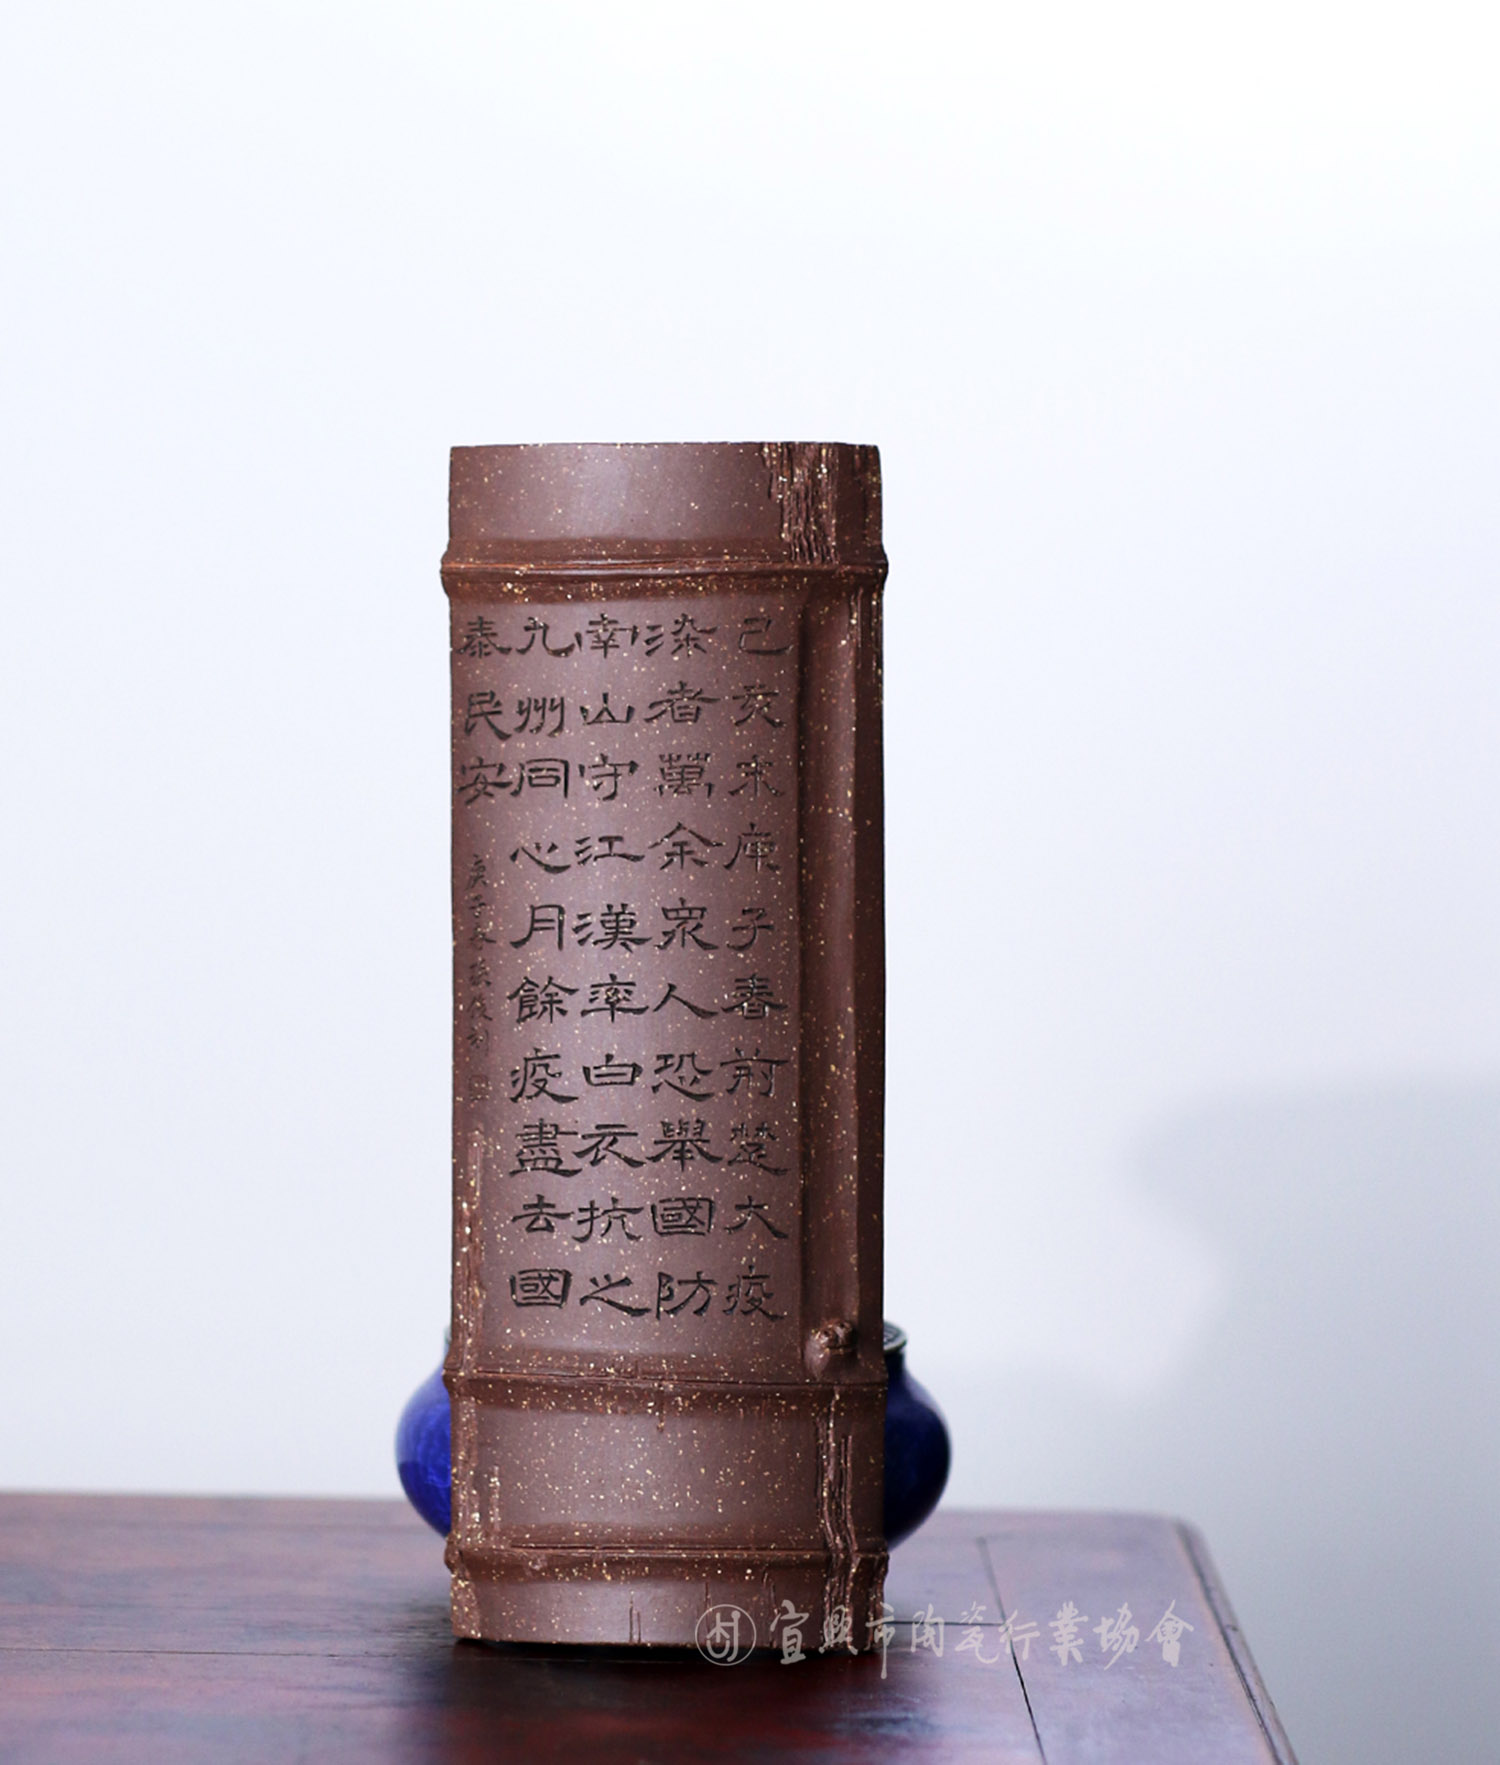 己亥末庚子春前楚大疫
染者萬余衆人恐舉國防
南山守江漢率白衣抗之
九州同心月餘疫盡去國
泰民安
庚子
刻
宜興市陶瓷行業協會